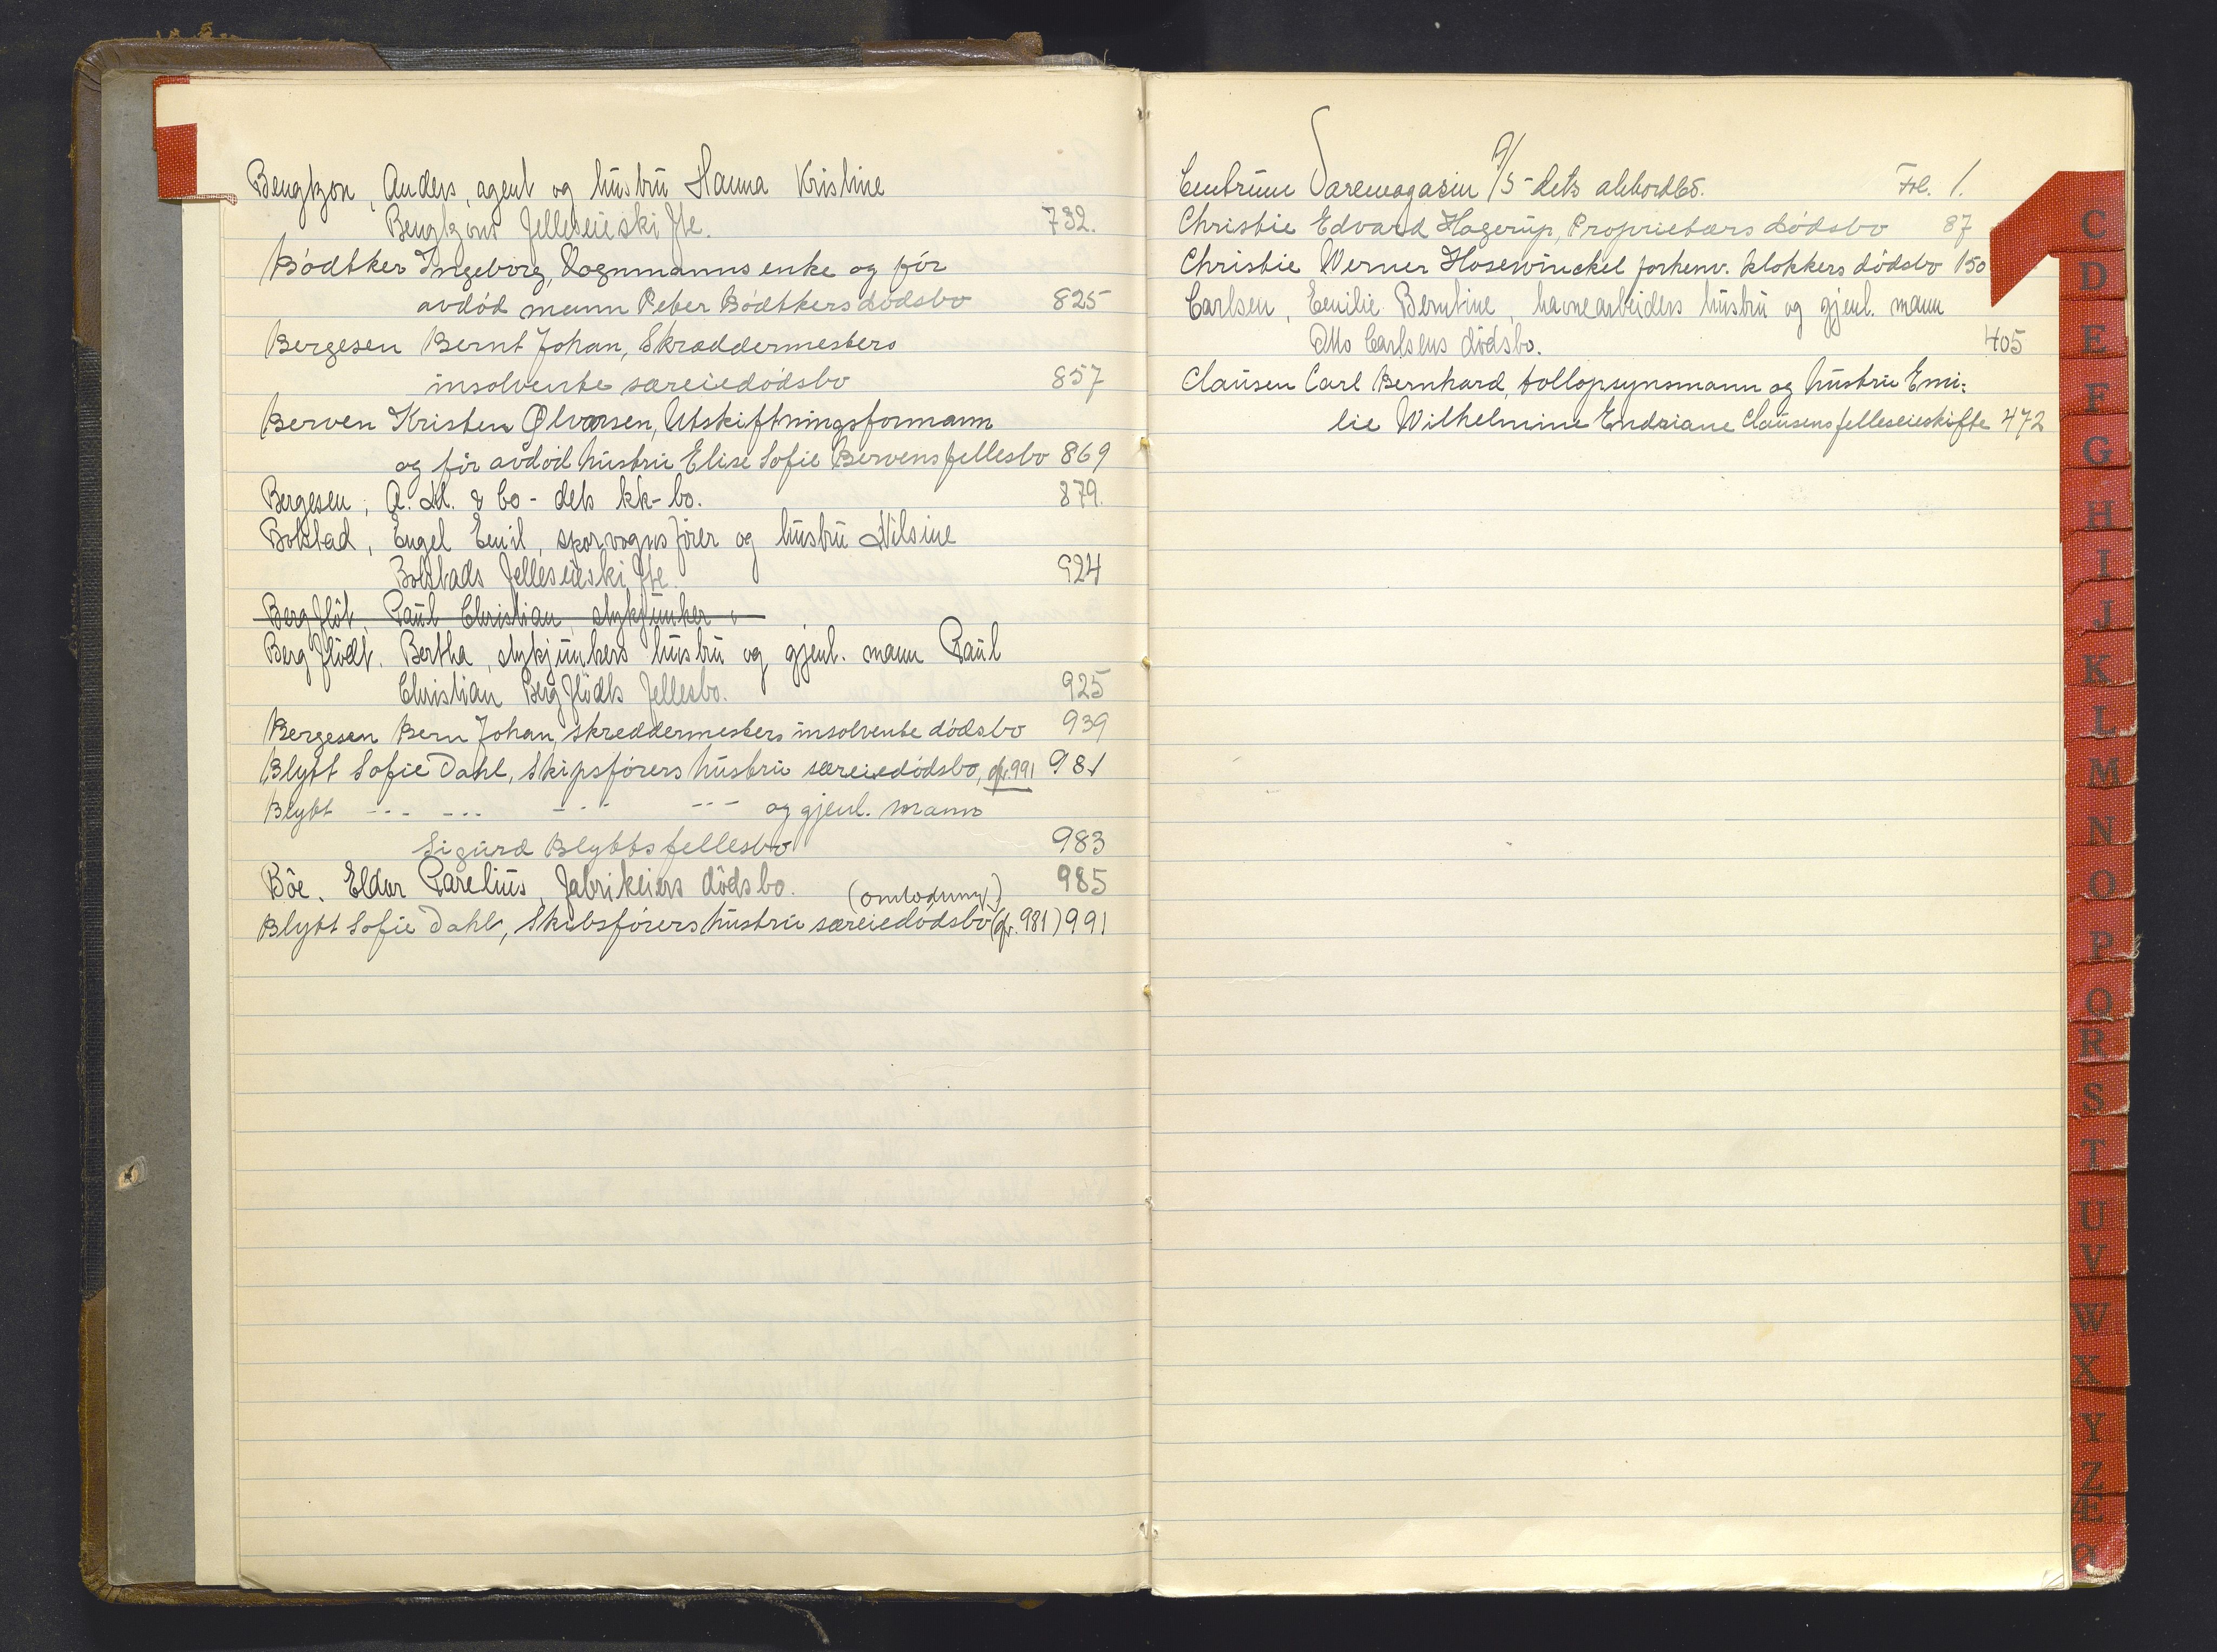 Bengtzon, Anders, agent og hustru Hanna Kristine
Bengtzons felleseieskifte. 732.
Bödtker Ingeborg, Vognmanns enke og för
avdöd mann Peter Bödtkers dödsbo 825
Bergesen Bernt Johan, Skræddermesters
insolvente særeiedödsbo 857
Berven Kristen Olvarsen, Utskiftningsformann
og för avdöd hustru Elise Sofie Bervens fellesbo 869
Bergesen, A. M. & Co - dets kk-bo. 879.
Bolstad, Engel Emil, sporvognsförer og hustru Nilsine
Bolstads felleseieskifte. 924
Bergflöt, Paul Christian, stykjunker
Bergflödt. Bertha, stykjunkers hustru og gjenl. mann Paul
Christian Bergflödts fellesbo. 925
Bergesen Bern Johan, skreddermesters insolvente dödsbo 939
Blytt Sofie Dahl, Skipsförers hustru særeiedödsbo, jfr. 991 981
Blytt --- --- --- --- og gjenl. mann
Sigurd Blytts fellesbo 983
Böe. Eldar Parelius, fabrikeiers dödsbo. 985
(omlodning)
Blytt Sofie Dahl, Skibsförers hustru særeiedödsbo (jfr. 981) 991
Centrum Varemagasin A/S - dets akkordbo. Fol. 1.
Christie Edvard Hagerup, Proprietærs dödsbo 87
Christie Werner Hosewinckel forhenv. klokkers dödsbo 150
Carlsen, Emilie Berntine, havnearbeiders hustru og gjenl. mann
Otto Carlsens dödsbo. 405
Clausen Carl Bernhard, tollopsynsmann og hustru Emi:
lie Wilhelmine Endriane Clausens felleseieskifte 472
C
D
E
F
G
H
I
J
K
L
M
N
O
P
Q
R
S
T
U
V
W
X
Y
Z
Æ
Ø